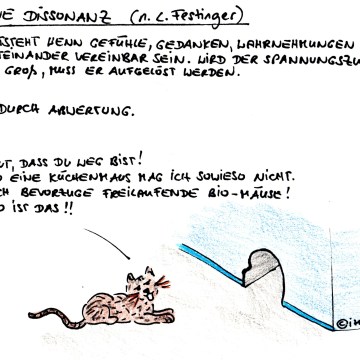 VE DISSONANZ (n. L. Festinger)
STEHT WENN GEFÜHLE, GEDANKEN, WAHRNEHMUNGEN
TEINANDER VEREINBAR SEIN. WIRD DER SPANNUNGSZU
GROß, MUSS ER AUFGELÖST WERDEN.
DURCH ABWERTUNG.
UT, DASS DU WEG BIST!
O EINE KÜCHENMAUS MAG ICH SOWIESO NICHT.
CH BEVORZUGE FREILAUFENDE BIO-MÄUSE!
O IST DAS!!